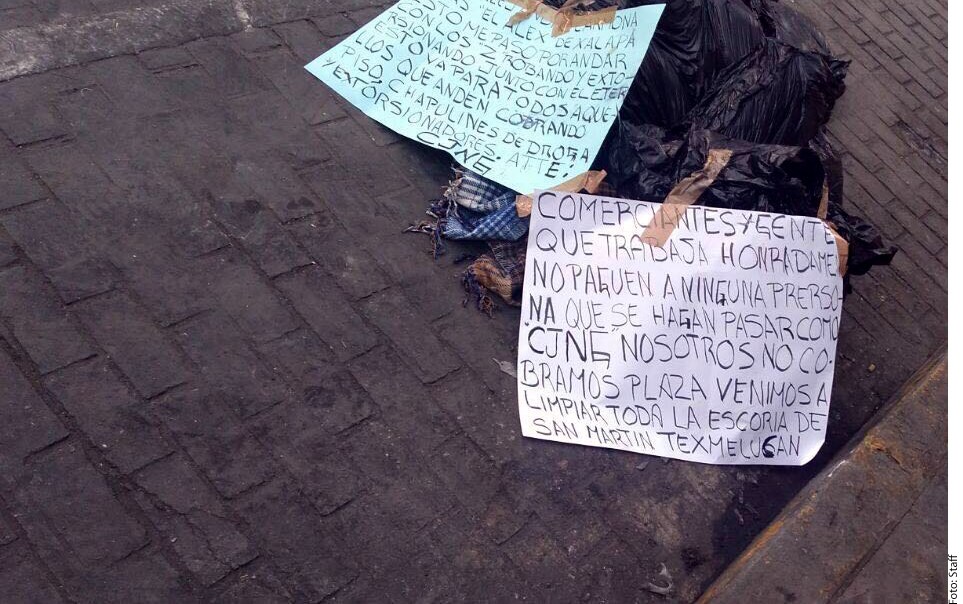 OSTO "EL ALEX" CARMONA
DE XALAPA
ESTO ME PASO POR ANDAR
ROBANDO Y EXTO-
RSIONANDO JUNTO CON EL ETER
ESTO VA PARA TODOS AQUE-
LLOS QUE ANDEN COBRANDO
PISO, CHAPULINES DE DROGA
Y EXTORSIONADORES.
CJNG. ATTE!
COMERCIANTES Y GENTE
QUE TRABAJA HONRADAME
NO PAGUEN A NINGUNA PRERSO-
NA QUE SE HAGAN PASAR COMO
CJNG, NOSOTROS NO CO-
BRAMOS PLAZA VENIMOS A
LIMPIAR TODA LA ESCORIA DE
SAN MARTIN TEXMELUCAN
Foto: Staff